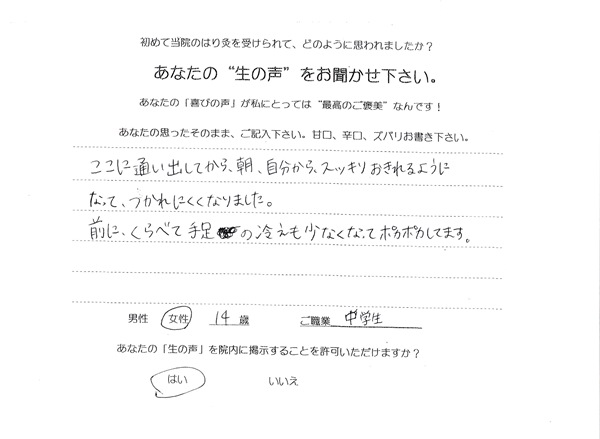 初めて当院のはり灸を受けられて、どのように思われましたか？
あなたの“生の声”をお聞かせ下さい。
あなたの「喜びの声」が私にとっては“最高のご褒美”なんです！
あなたの思ったそのまま、ご記入下さい。甘口、辛口、ズバリお書き下さい。
ここに通い出してから、朝、自分から、スッキリおきれるように
なって、つかれにくくなりました。
前に、くらべて手足の冷えも少なくなってポカポカしてます。
男性 女性 14歳 ご職業 中学生
あなたの「生の声」を院内に掲示することを許可いただけますか？
はい いいえ